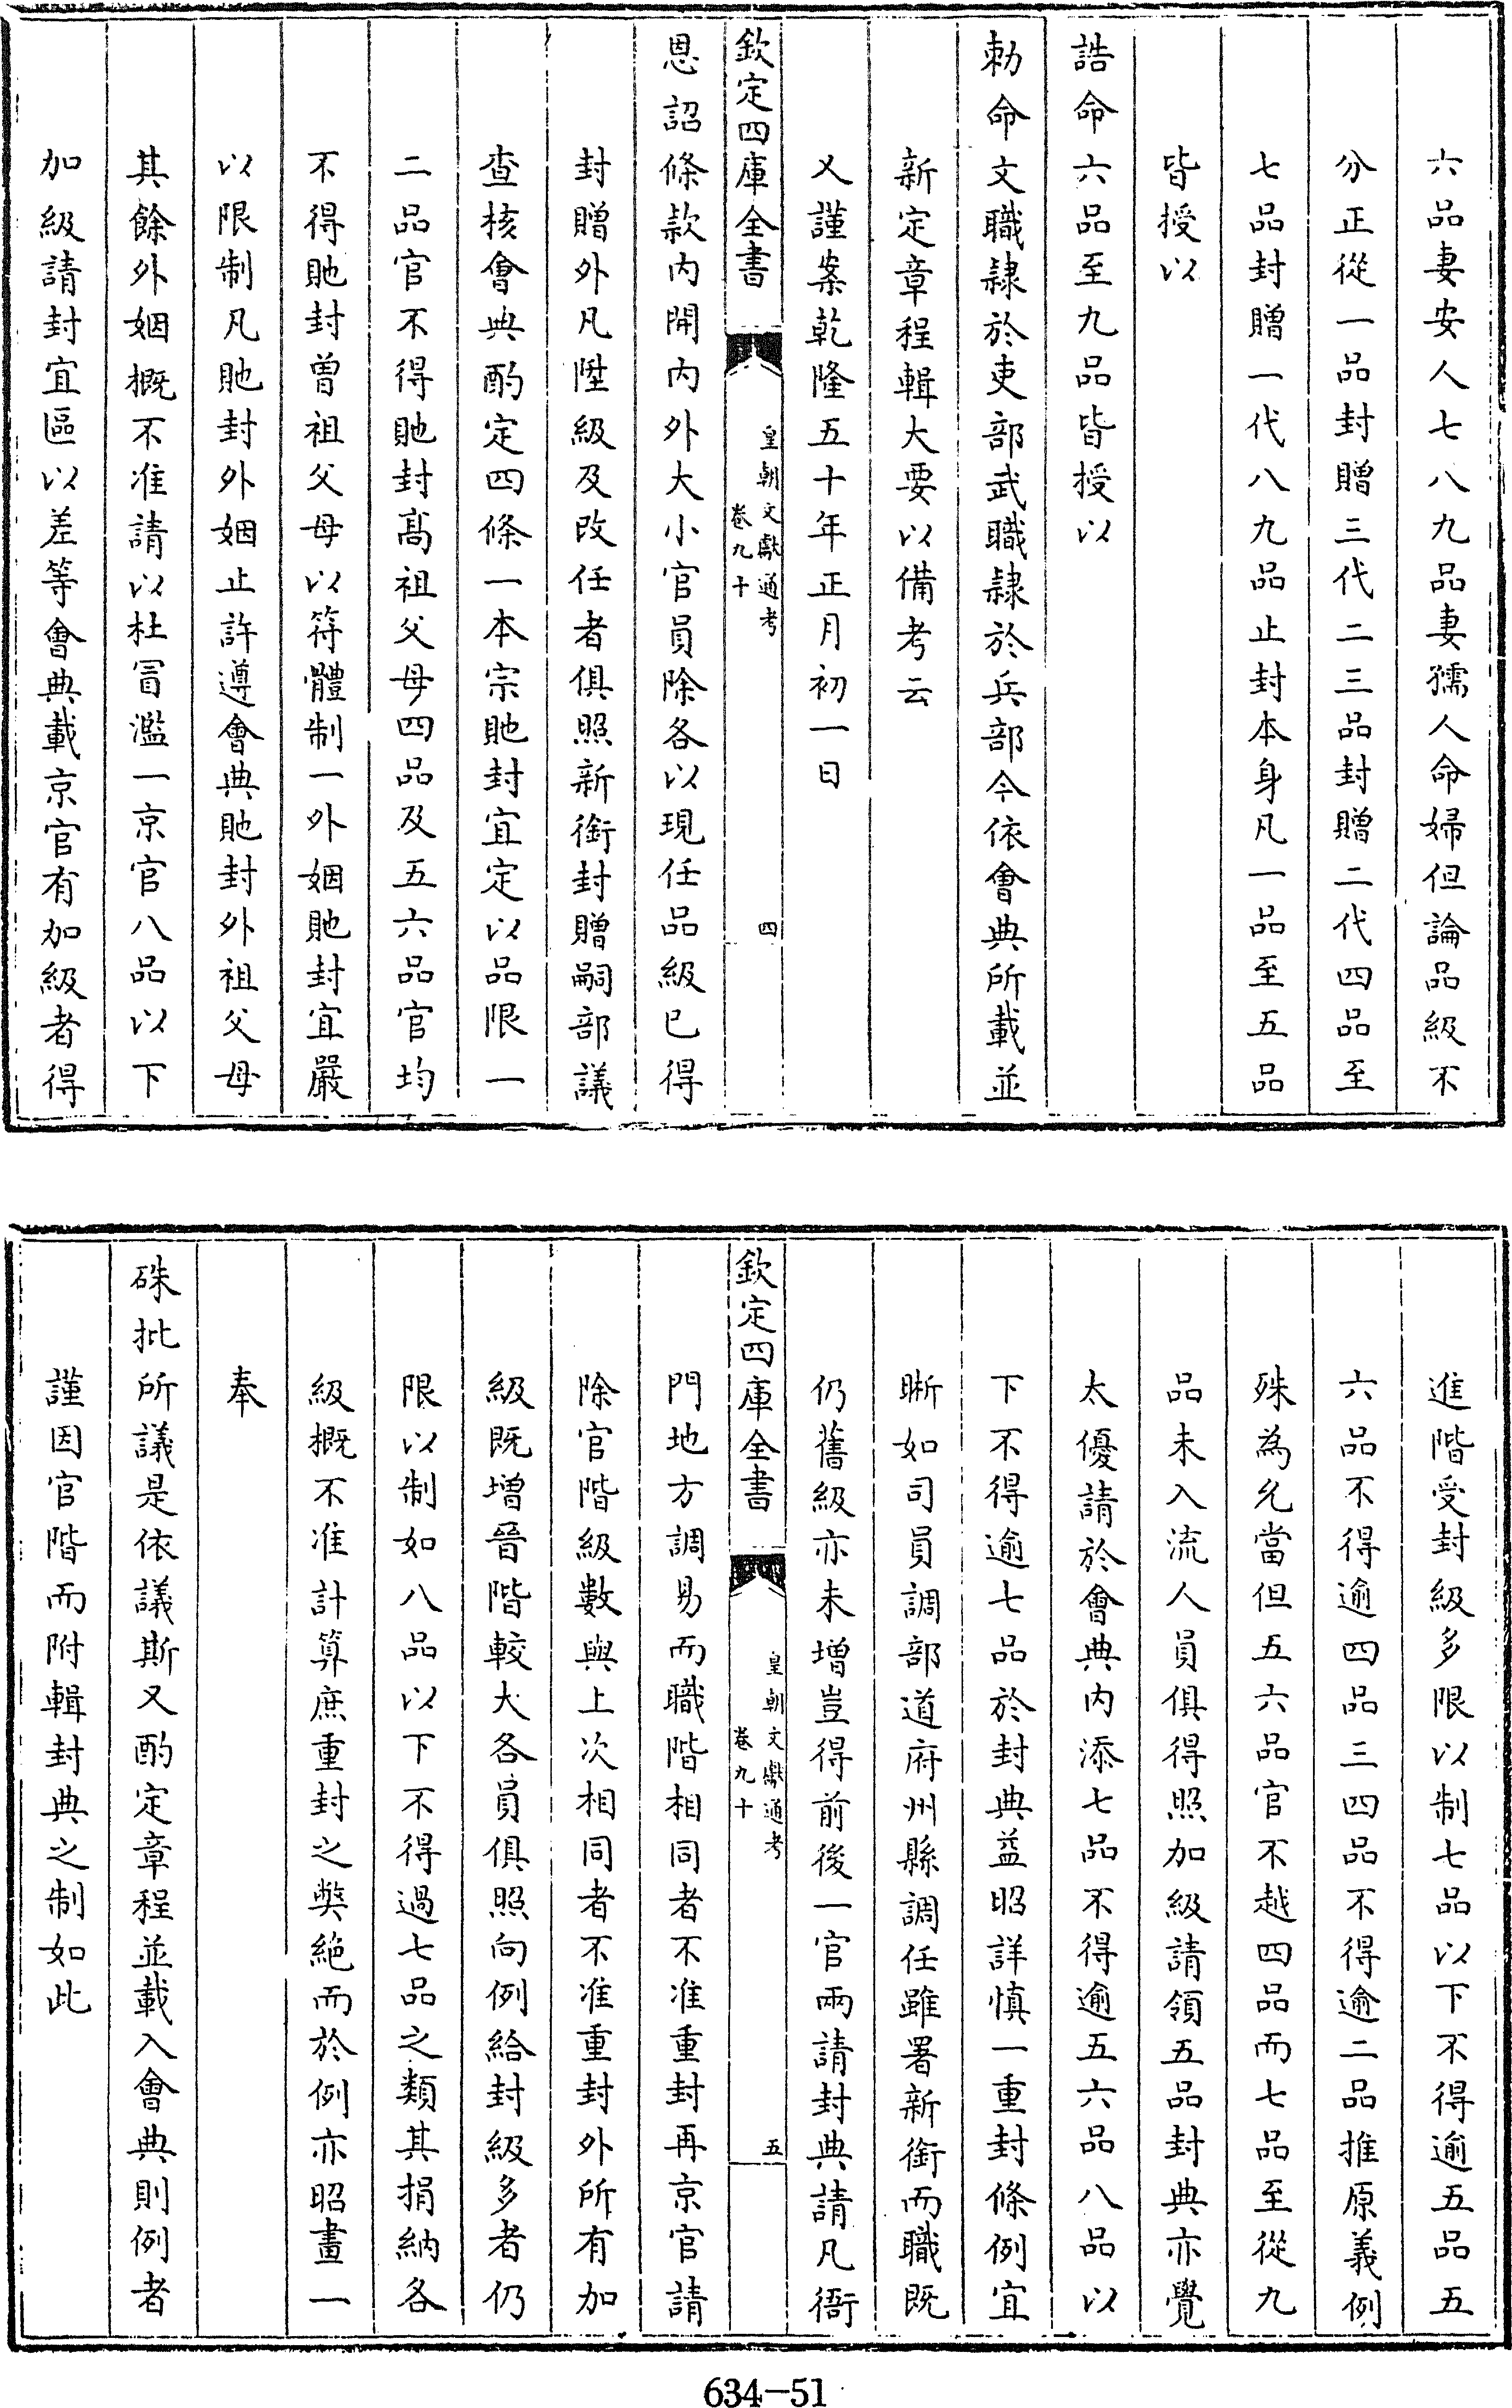 六品妻安人七八九品妻孺人命婦但論品級不
分正從一品封贈三代二三品封贈二代四品至
七品封贈一代八九品止封本身凡一品至五品
皆授以
誥命六品至九品皆授以
勅命文職隷於吏部武職隷於兵部今依會典所載並
新定章程輯大要以備考云
又謹案乾隆五十年正月初一日
欽定四庫全書
皇朝文獻通考
卷九十
四
恩詔條款內開內外大小官員除各以現任品級已得
封贈外凡陞級及改任者俱照新銜封贈嗣部議
查核會典酌定四條一本宗貤封宜定以品限一
二品官不得貤封高祖父母四品及五六品官均
不得貤封曾祖父母以符體制一外姻貤封宜嚴
以限制凡貤封外姻止許遵會典貤封外祖父母
其餘外姻概不准請以杜冒濫一京官八品以下
加級請封宜區以差等會典載京官有加級者得
進階受封級多限以制七品以下不得逾五品五
六品不得逾四品三四品不得逾二品推原義例
殊為允當但五六品官不越四品而七品至從九
品未入流人員俱得照加級請領五品封典亦覺
太優請於會典內添七品不得逾五六品八品以
下不得逾七品於封典益昭詳慎一重封條例宜
晰如司員調部道府州縣調任雖署新銜而職既
仍舊級亦未增豈得前後一官兩請封典請凡衙
欽定四庫全書
皇朝文獻通考
卷九十
五
門地方調易而職階相同者不准重封再京官請
除官階級數與上次相同者不准重封外所有加
級既增晉階較大各員俱照向例給封級多者仍
限以制如八品以下不得過七品之類其捐納各
級概不准計算庶重封之獘絕而於例亦昭畫一
奉
硃批所議是依議斯又酌定章程並載入會典則例者
謹因官階而附輯封典之制如此
634-51